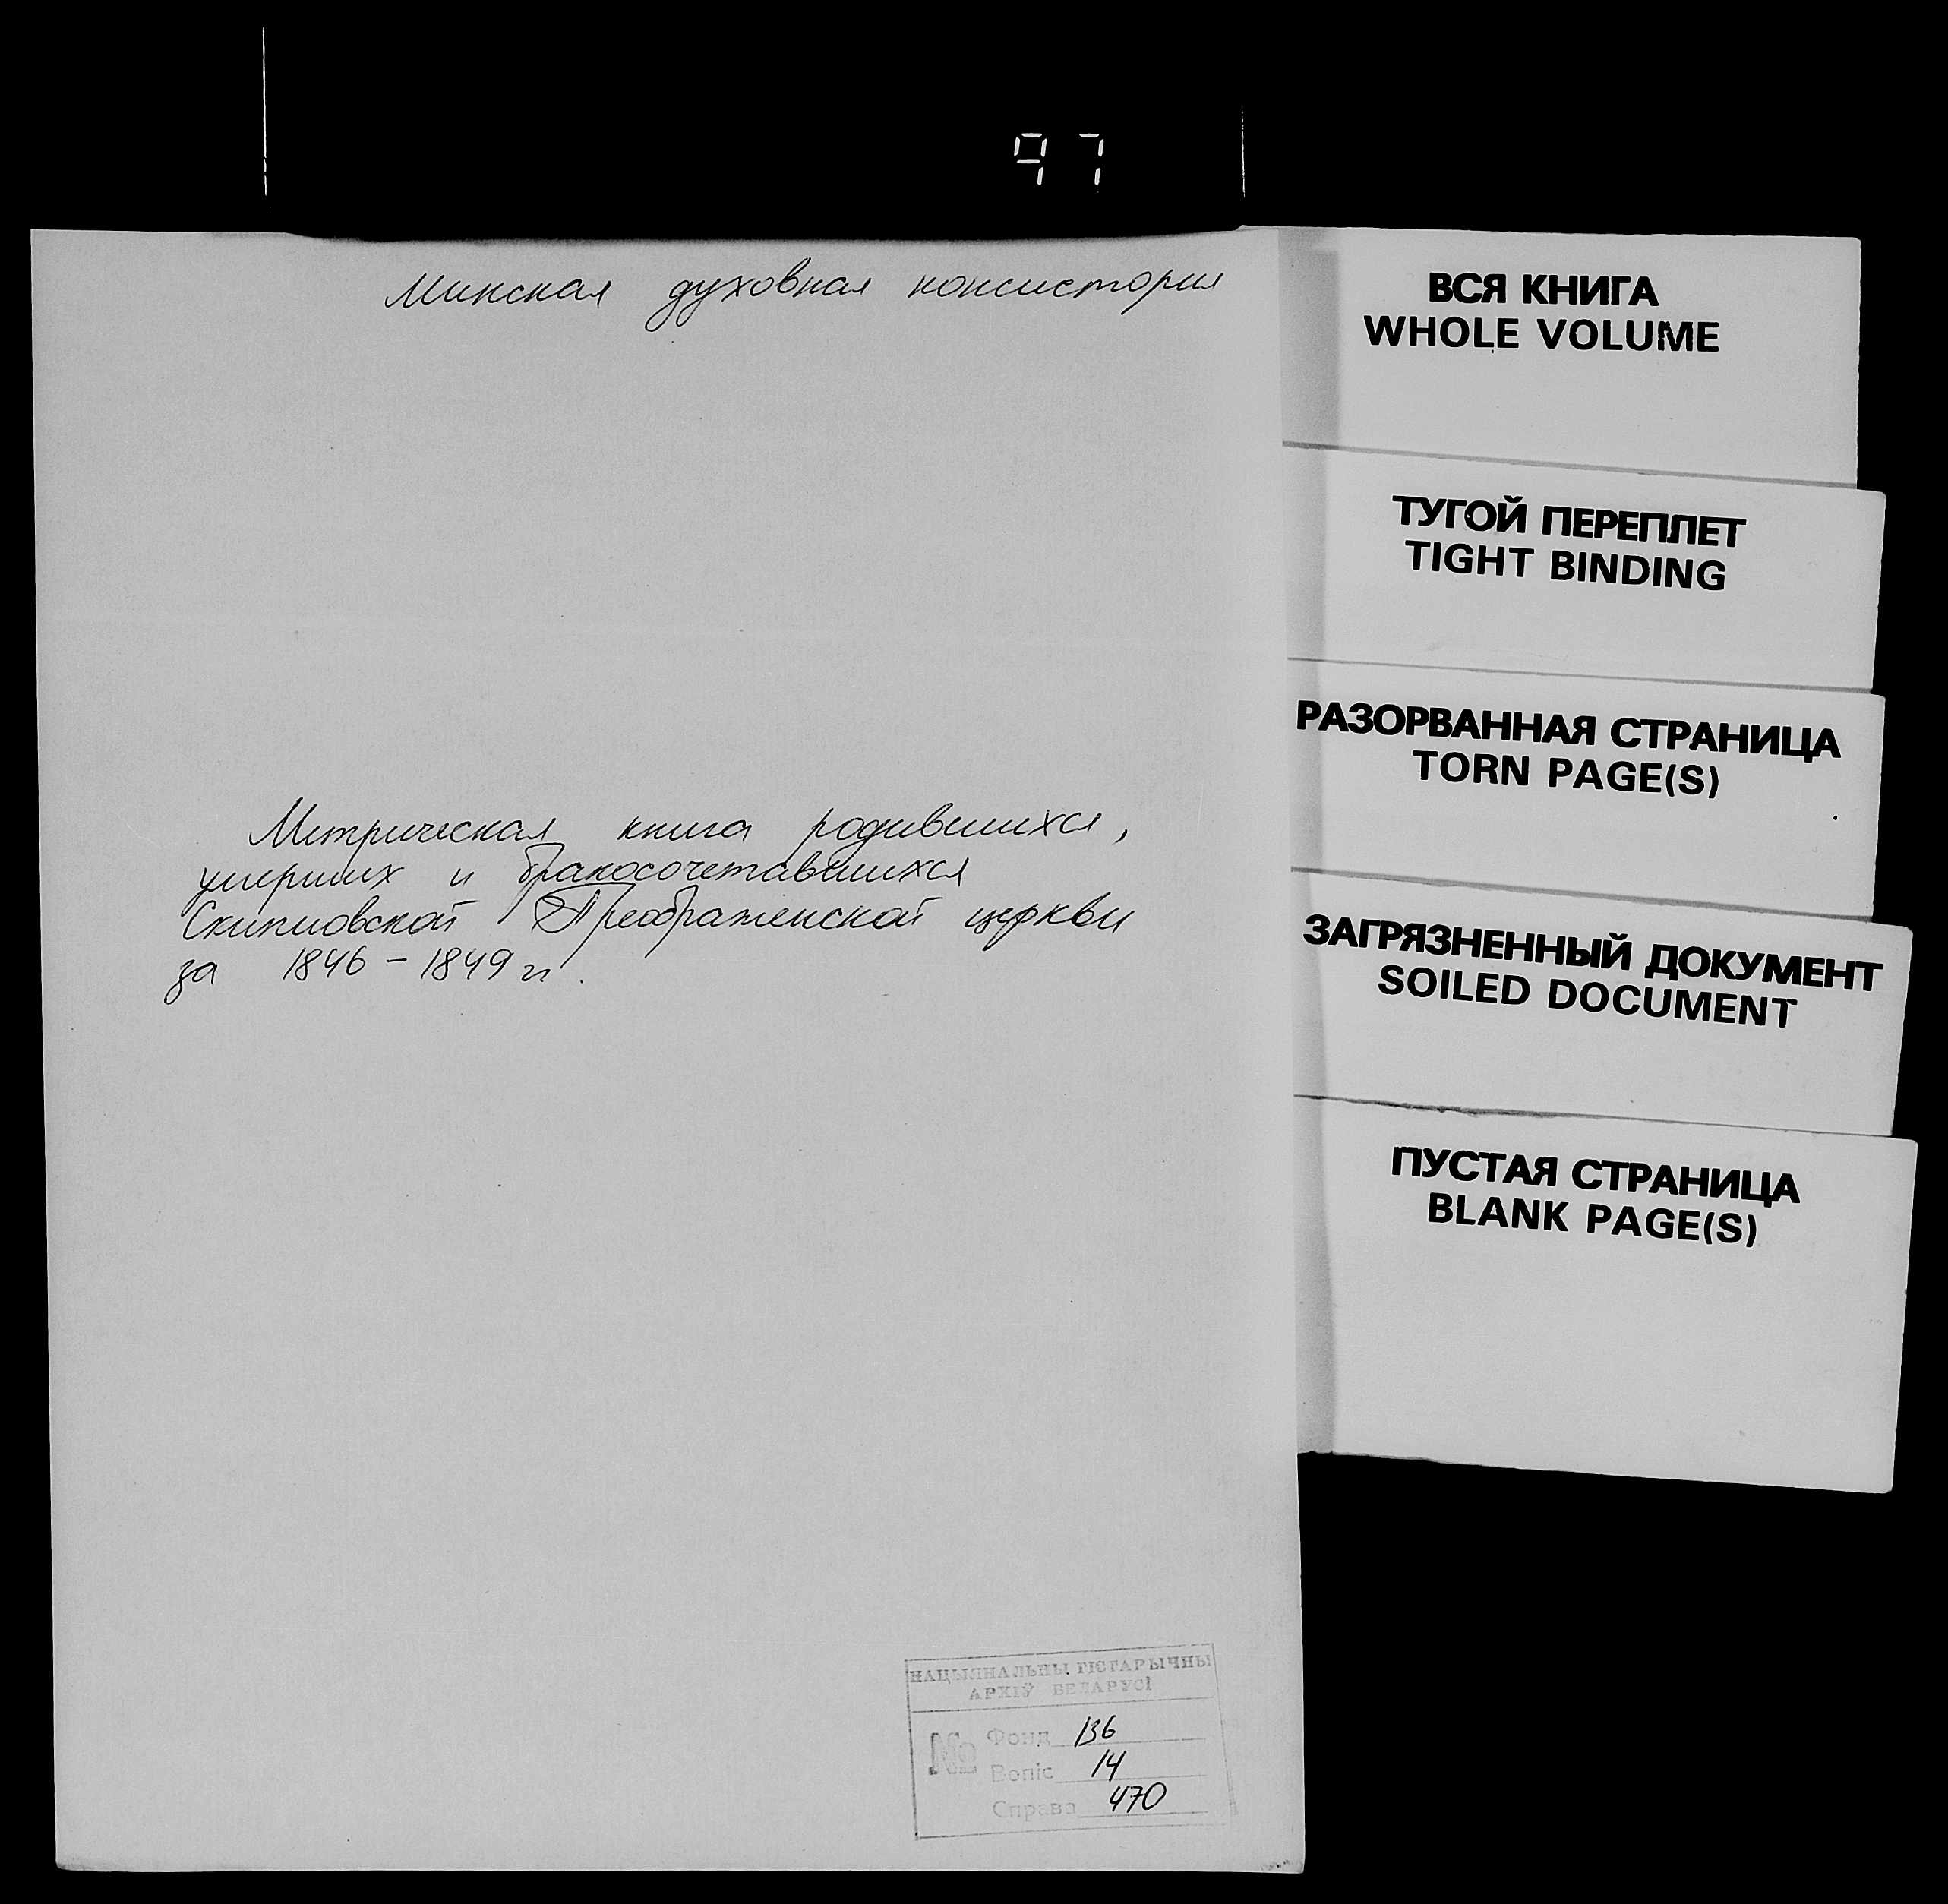 97
Минская духовная консистория
Метрическая книга родившихся,
умерших и бракосочетавшихся
Преображенской церкви
за 1846-1849 гг.
ВСЯ КНИГА
WHOLE VOLUME
ТУГОЙ ПЕРЕПЛЕТ
TIGHT BINDING
РАЗОРВАННАЯ СТРАНИЦА
TORN PAGE(S)
ЗАГРЯЗНЕННЫЙ ДОКУМЕНТ
SOILED DOCUMENT
ПУСТАЯ СТРАНИЦА
BLANK PAGE(S)
НАЦЫЯНАЛЬНЫ ГІСТАРЫЧНЫ
АРХІЎ БЕЛАРУСІ
№ Фонд 136
Вопіс 14
Справа 470